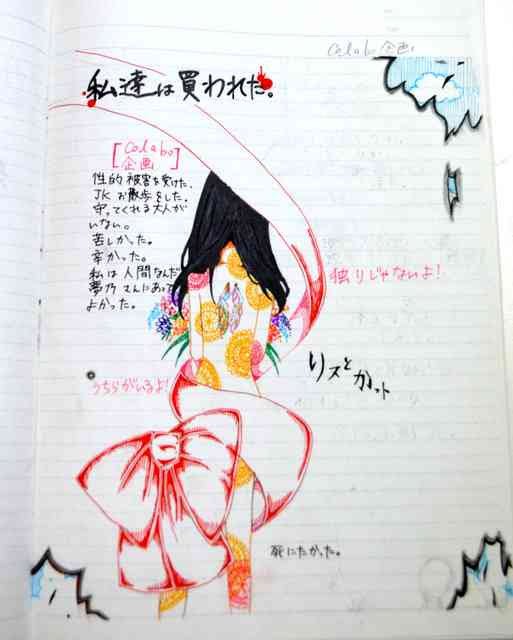 Colabo企画
私達は買われた。
[Colabo
企画]
性的被害を受けた.
JKお散歩をした.
守ってくれる大人が
いない。
苦しかった。
辛かった。
私は人間なんだ
夢乃さんにあって
よかった。
独りじゃないよ!
リストカット
うちらがいるよ!
死にたかった。